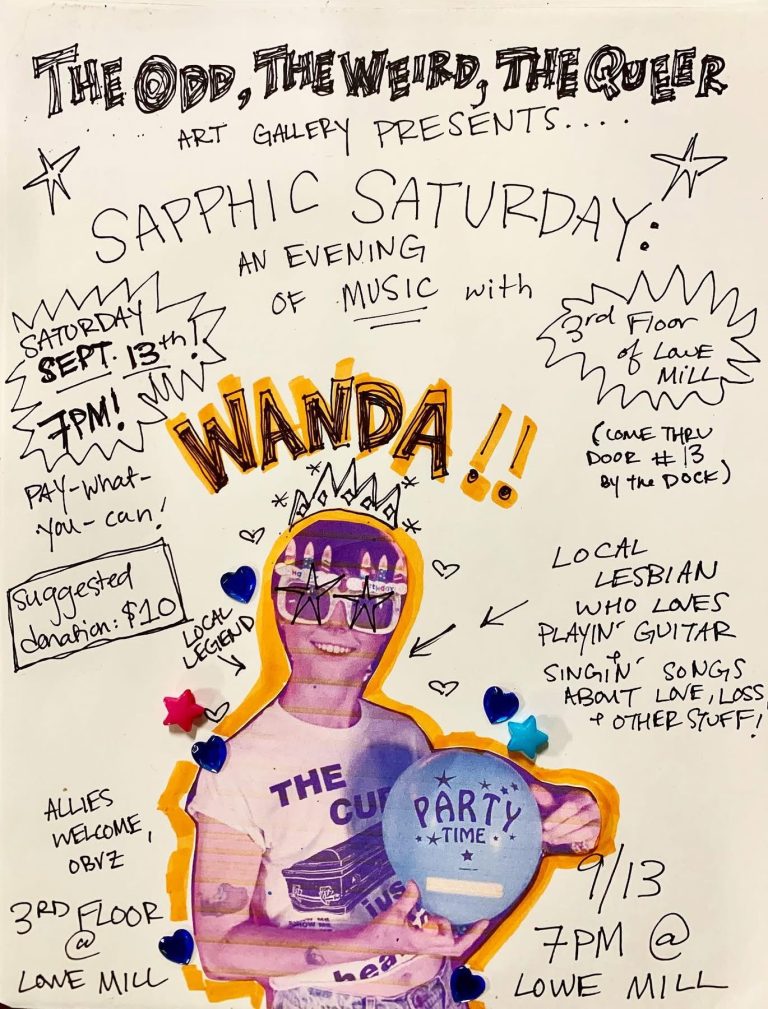 THE ODD, THE WEIRD, THE QUEER
ART GALLERY PRESENTS....
SAPPHIC SATURDAY:
AN EVENING
OF MUSIC with
SATURDAY
SEPT. 13th!
7PM!
3rd Floor
of Lowe
Mill
(COME THRU
DOOR #13
BY the DOCK)
WANDA!!
PAY-what-
you-can!
suggested
donation: $10
LOCAL
LEGEND
LOCAL
LESBIAN
WHO LOVES
PLAYIN' GUITAR
+
SINGIN' SONGS
ABOUT LOVE, LOSS,
+ OTHER STUFF!
THE
CU
PARTY
TIME
ALLIES
WELCOME,
OBVZ
3RD FLOOR
@
LOWE MILL
9/13
7PM @
LOWE MILL